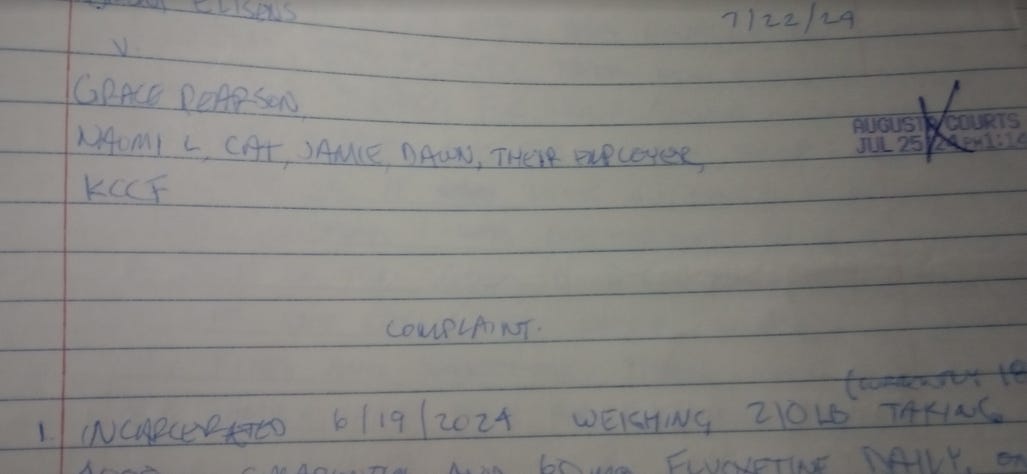 7/22/24
V.
GRACE PEARSON,
NAOMI L, CAT, JAMIE, DAWN, THEIR EMPLOYER,
KCCF
AUGUSTA COURTS
JUL 25 '24 PM1:1
COMPLAINT.
1. INCARCERATED 6/19/2024 WEIGHING 210LB TAKING
AND 60mg FLUOXETINE DAILY